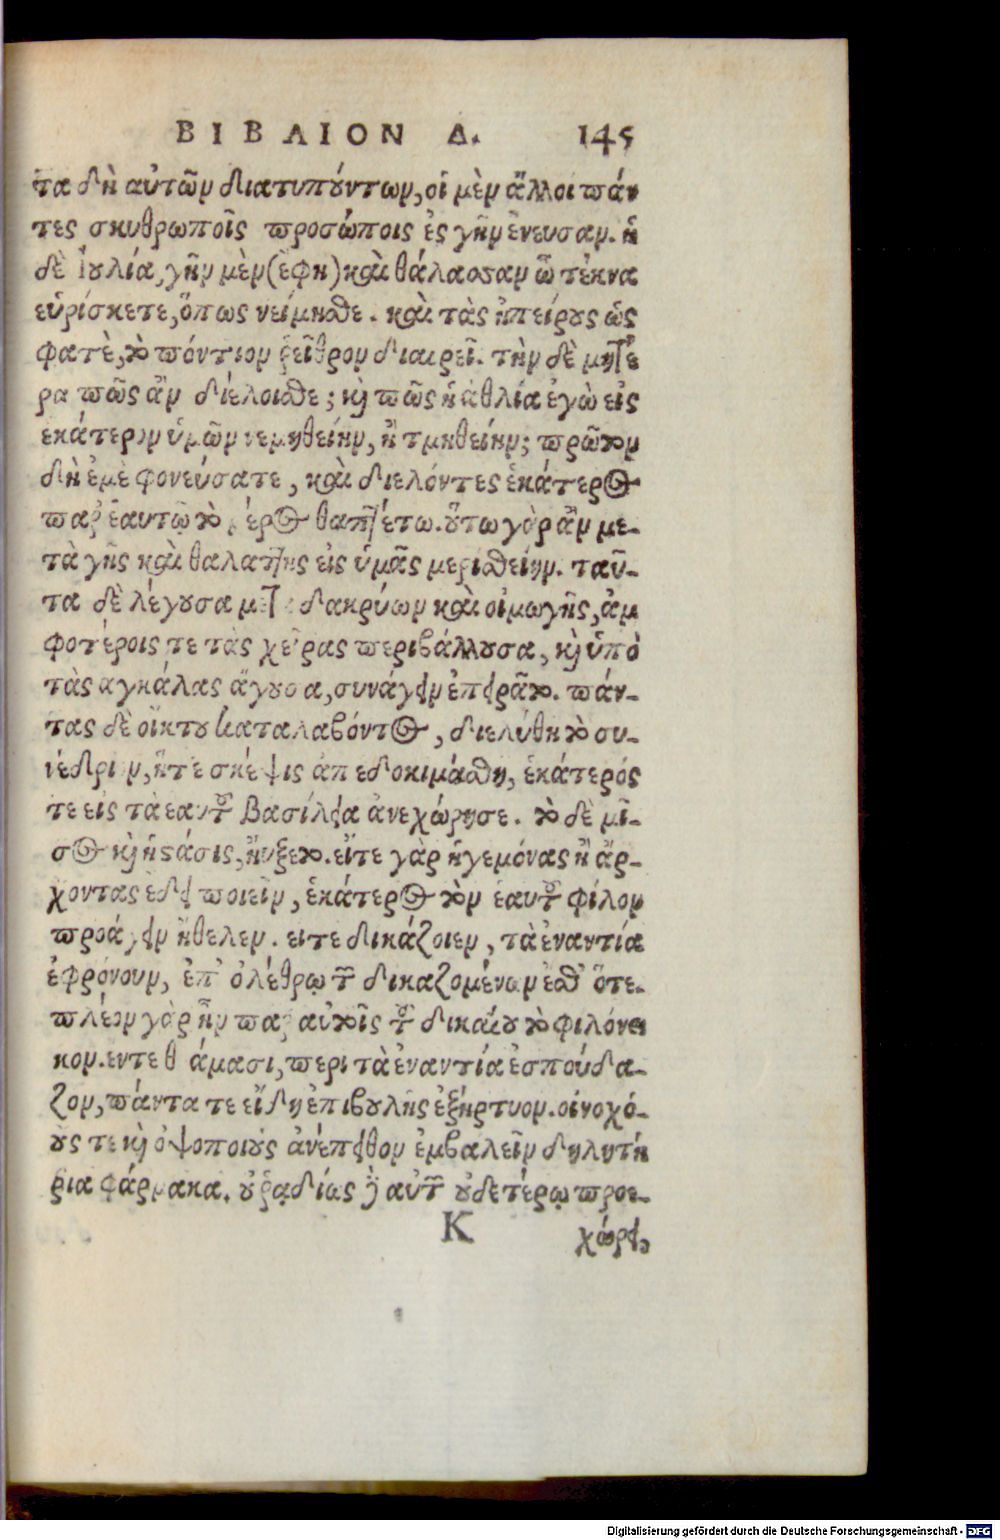 ΒΙΒΛΙΟΝ Δ. 145
τα δὴ αὐτῶν διατυπούντων, οἱ μὲν ἄλλοι πάν
τες σκυθρωποῖς προσώποις ἐς γῆν ἔνευσαν. ἡ
δὲ Ἰουλία, γῆν μὲν (ἔφη) καὶ θάλασσαν ὦ τέκνα
εὑρίσκετε, ὅπως νείμησθε. καὶ τὰς ἠπείρους ὥς
φατὲ, τὸ πόντιον ῥεῖθρον διαιρεῖ. τὴν δὲ μητέ
ρα πῶς ἂν διέλοισθε; καὶ πῶς ἡ ἀθλία ἐγὼ εἰς
εκάτερον ὑμῶν νεμηθείην, ἢ τμηθείην; πρῶτον
δὴ ἐμὲ φονεύσατε, καὶ διελόντες ἑκάτερος
παρ' ἑαυτῷ τὸ μέρος θαπτέτω. οὕτω γὰρ ἂν με-
τὰ γῆς καὶ θαλάττης εἰς ὑμᾶς μερισθείην. ταῦ-
τα δὲ λέγουσα μετὰ δακρύων καὶ οἰμωγῆς, ἀμ
φοτέροις τε τὰς χεῖρας περιβάλλουσα, καὶ ὑπὸ
τὰς αγκάλας ἄγουσα, συνάγειν ἐπειρᾶτο. πάν-
τας δὲ οἴκτου καταλαβόντος, διελύθη τὸ συ-
νέδριον, ἥτε σκέψις ἀπεδοκιμάσθη, ἑκάτερός
τε εἰς τὰ εαυτοῦ βασίλεια ἀνεχώρησε. τὸ δὲ μῖ-
σος καὶ ἡ στάσις, ηὔξετο. εἴτε γὰρ ἡγεμόνας ἢ ἄρ-
χοντας ἔδει ποιεῖν, ἑκάτερος τὸν ἑαυτοῦ φίλον
προάγειν ἤθελεν. ειτε δικάζοιεν, τὰ ἐναντία
ἐφρόνουν, ἐπ' ὀλέθρῳ τῶν δικαζομένων ἔσθ' ὅτε.
πλέον γὰρ ἦν παρ' αὐτοῖς τοῦ δικαίου τὸ φιλόνει
κον. εντε θεάμασι, περι τὰ ἐναντία ἐσπούδα-
ζον, πάντα τε εἴδη ἐπιβουλῆς ἐξήρτυον. οἰνοχό-
ους τε καὶ ὀψοποιοὺς ἀνέπειθον ἐμβαλεῖν δηλητή
ρια φάρμακα. οὐ ῥᾳδίως δὲ αὐτῶν οὐδετέρῳ προε-
K χώρει,
Digitalisierung gefördert durch die Deutsche Forschungsgemeinschaft - DFG